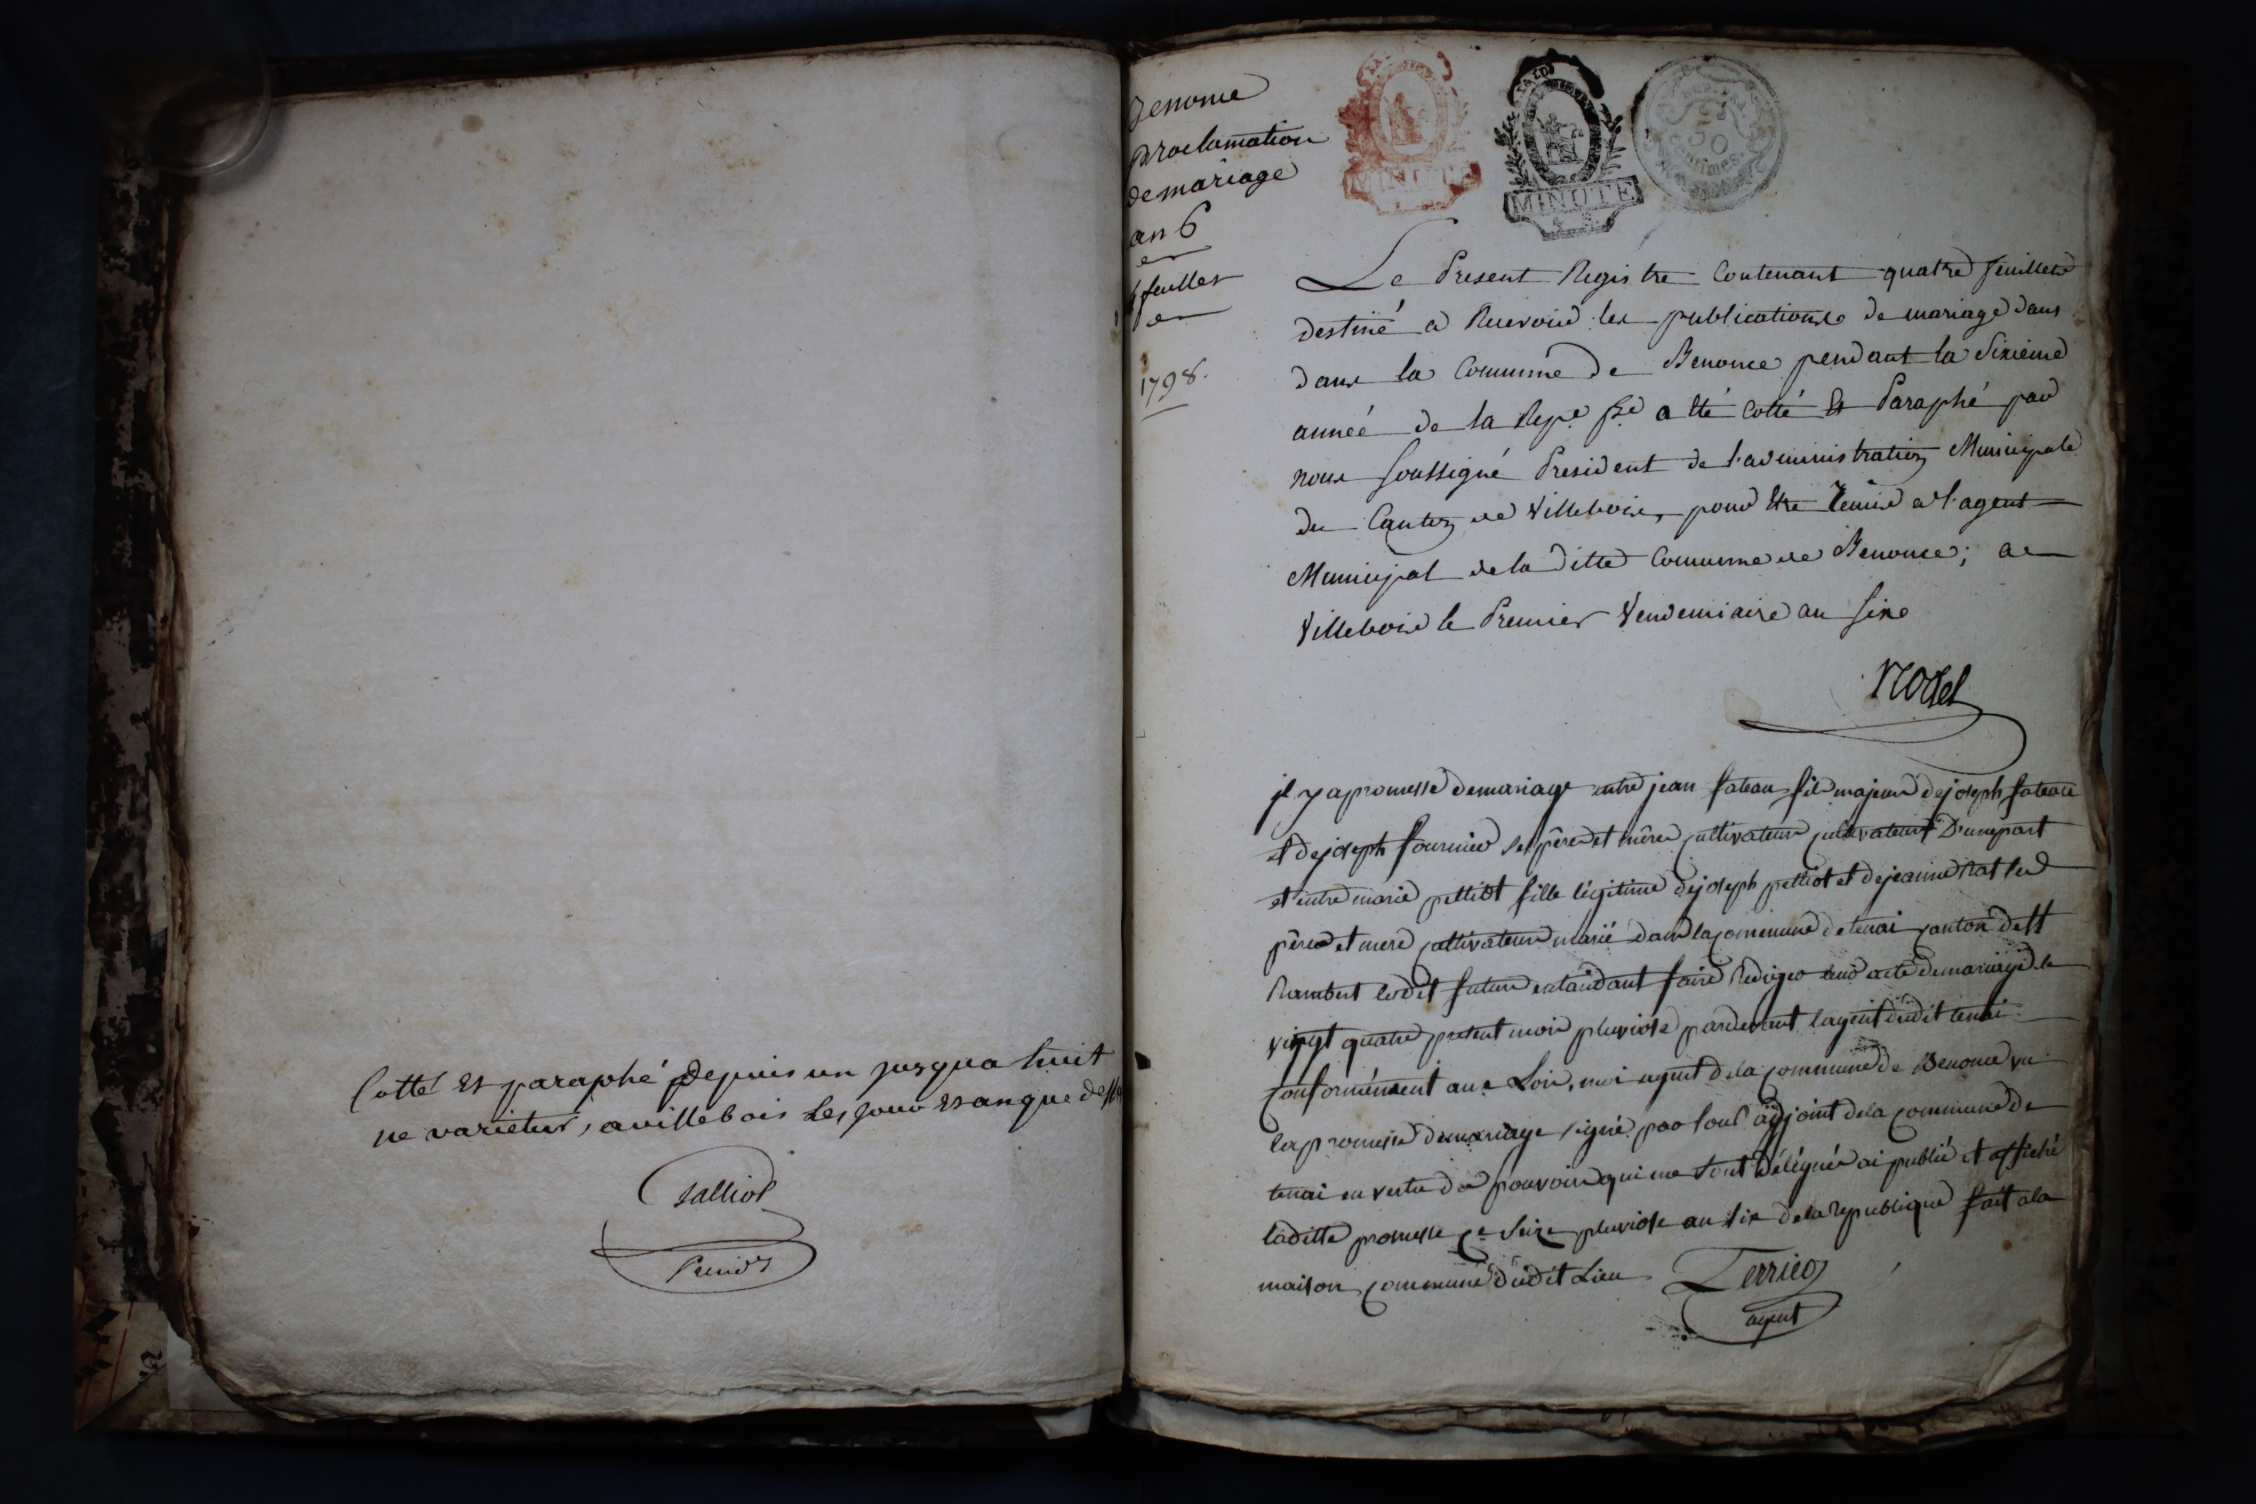 Cotté et paraphé depuis un jusqua huit
ne varietur, a villebois les jour et an que dessus
Talliot
Presidt
Benonce
proclamation
de mariage
an 6
4 feuilles
1798.
MINUTE
MINUTE
50
Centimes
Le Present Registre Contenant quatre feuillets
destiné a Recevoir les publications de mariage dans
dans la Commune de Benonce pendant la Sixieme
année de la Repe. fse. a été Cotté Et Paraphé par
nous Soussigné President de l'administration Municipale
du Canton de Villebois, pour Etre Remis a l'agent
Municipal de la ditte Commune de Benonce; a
Villebois le Premier Vendemiaire an Six
Nodet
il y a promesse de mariage entre jean fateau fils majeur de joseph fateau
et de joseph fournier ses père et mère cultivateur cultivateurs D'une part
et entre marie pettiot fille légitime de joseph pettiot et de jeanne
père et mere cultivateur marié dans la commune de tenai canton de St
Rambert lesdit future entandant faire Rediger leur acte de mariage le
vingt quatre present mois pluviose pardevant lagent dudit tenai
conformément aux Lois, moi agent de la commune de Benonce vu
la promesse de mariage signé par adjoint de la commune de
tenai en vertu des pouvoirs qui me sont délégués ai publié et affiché
laditte promesse ce seize pluviose an six de la republique fait a la
maison commune dudit Lieu
Terrier
agent